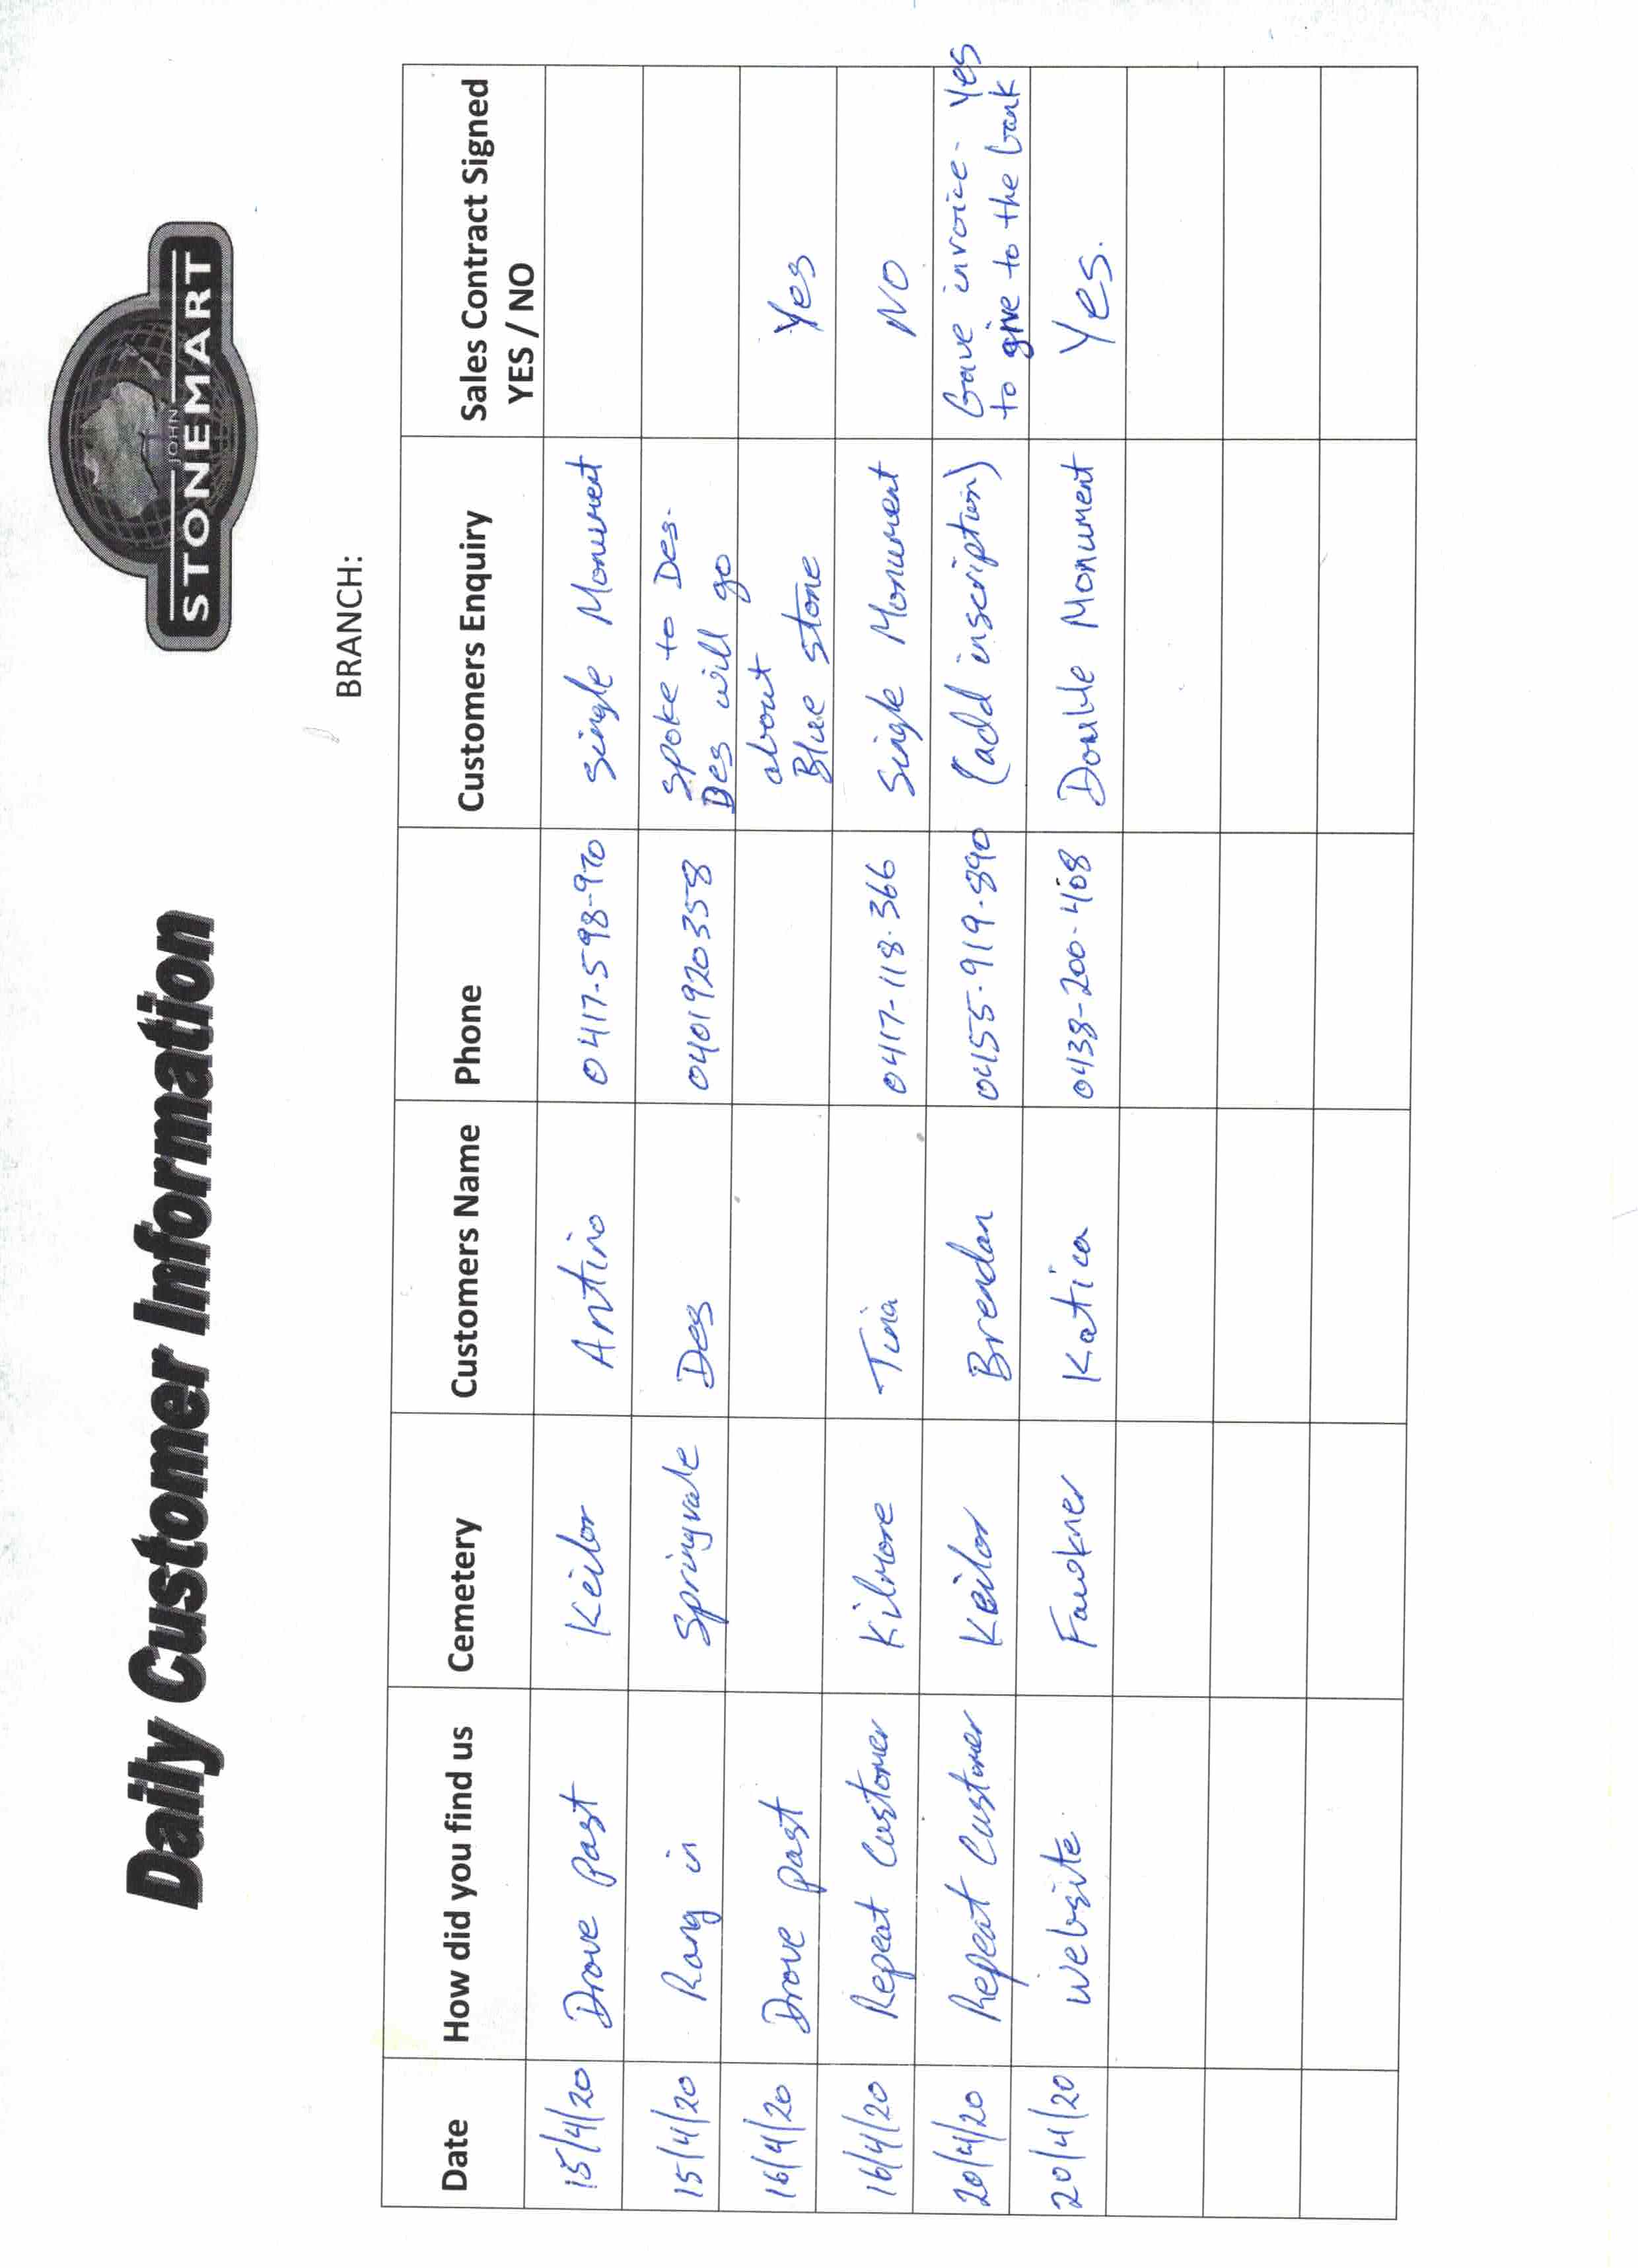 Daily Customer Information
JOHN
STONEMART
BRANCH:
Date How did you find us Cemetery Customers Name Phone Customers Enquiry Sales Contract Signed
YES / NO
15/4/20 Drove past Keilor Antino 0417-598-970 Single Monument
15/4/20 Rang in Springvale Des 0401920358 Spoke to Des.
Des will go
16/4/20 Drove past about Yes
Blue stone
16/4/20 Repeat Customer Kilmore Tina 0417-118-366 Single Monument NO
20/4/20 Repeat Customer Keilor Brendan 0455-919-890 (add inscription) Gave invoice - Yes
to give to the bank
20/4/20 Website. Fawkner Katica 0438-200-408 Double Monument Yes.